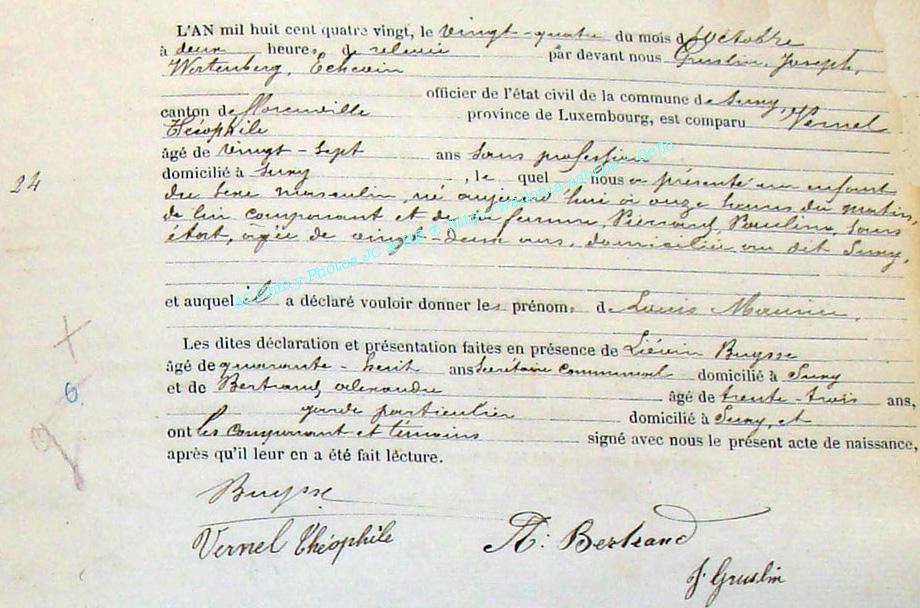 L'AN mil huit cent quatre vingt, le vingt-quatre du mois d'octobre
à deux heures de relevée par devant nous Gruslin, Joseph,
Wertenberg, Echevin
officier de l'état civil de la commune de Suny,
canton de Florenville province de Luxembourg, est comparu Vernel
Théophile
âgé de vingt-sept ans sans profession
domicilié à Suny, le quel nous a présenté un enfant
24
du sexe masculin, né aujourd'hui à onze heures du matin,
de lui comparant et de sa femme, Pierrard, Pauline, sans
état, âgée de vingt-deux ans, domiciliée au dit Suny,
et auquel il a déclaré vouloir donner les prénoms de Louis Maurice.
Les dites déclaration et présentation faites en présence de Liévin Buysse
âgé de quarante-huit ans secrétaire communal domicilié à Suny
et de Bertrand, alexandre âgé de trente-trois ans,
6.
garde particulier domicilié à Suny, et
ont les comparant et témoins signé avec nous le présent acte de naissance,
après qu'il leur en a été fait lecture.
Buysse
Vernel Théophile A: Bertrand
J. Gruslin